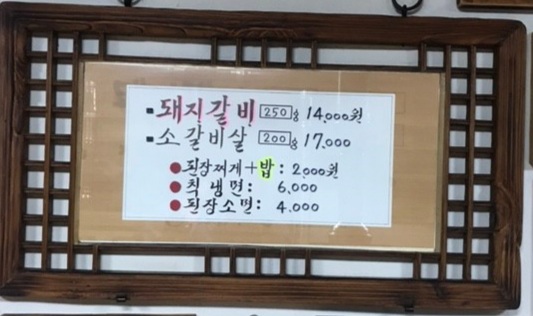 ■ 돼지갈비 250g 14,000원
■ 소갈비살 200g 17,000
● 된장찌게+밥 : 2,000원
● 칡냉면 : 6,000
● 된장소면 : 4,000